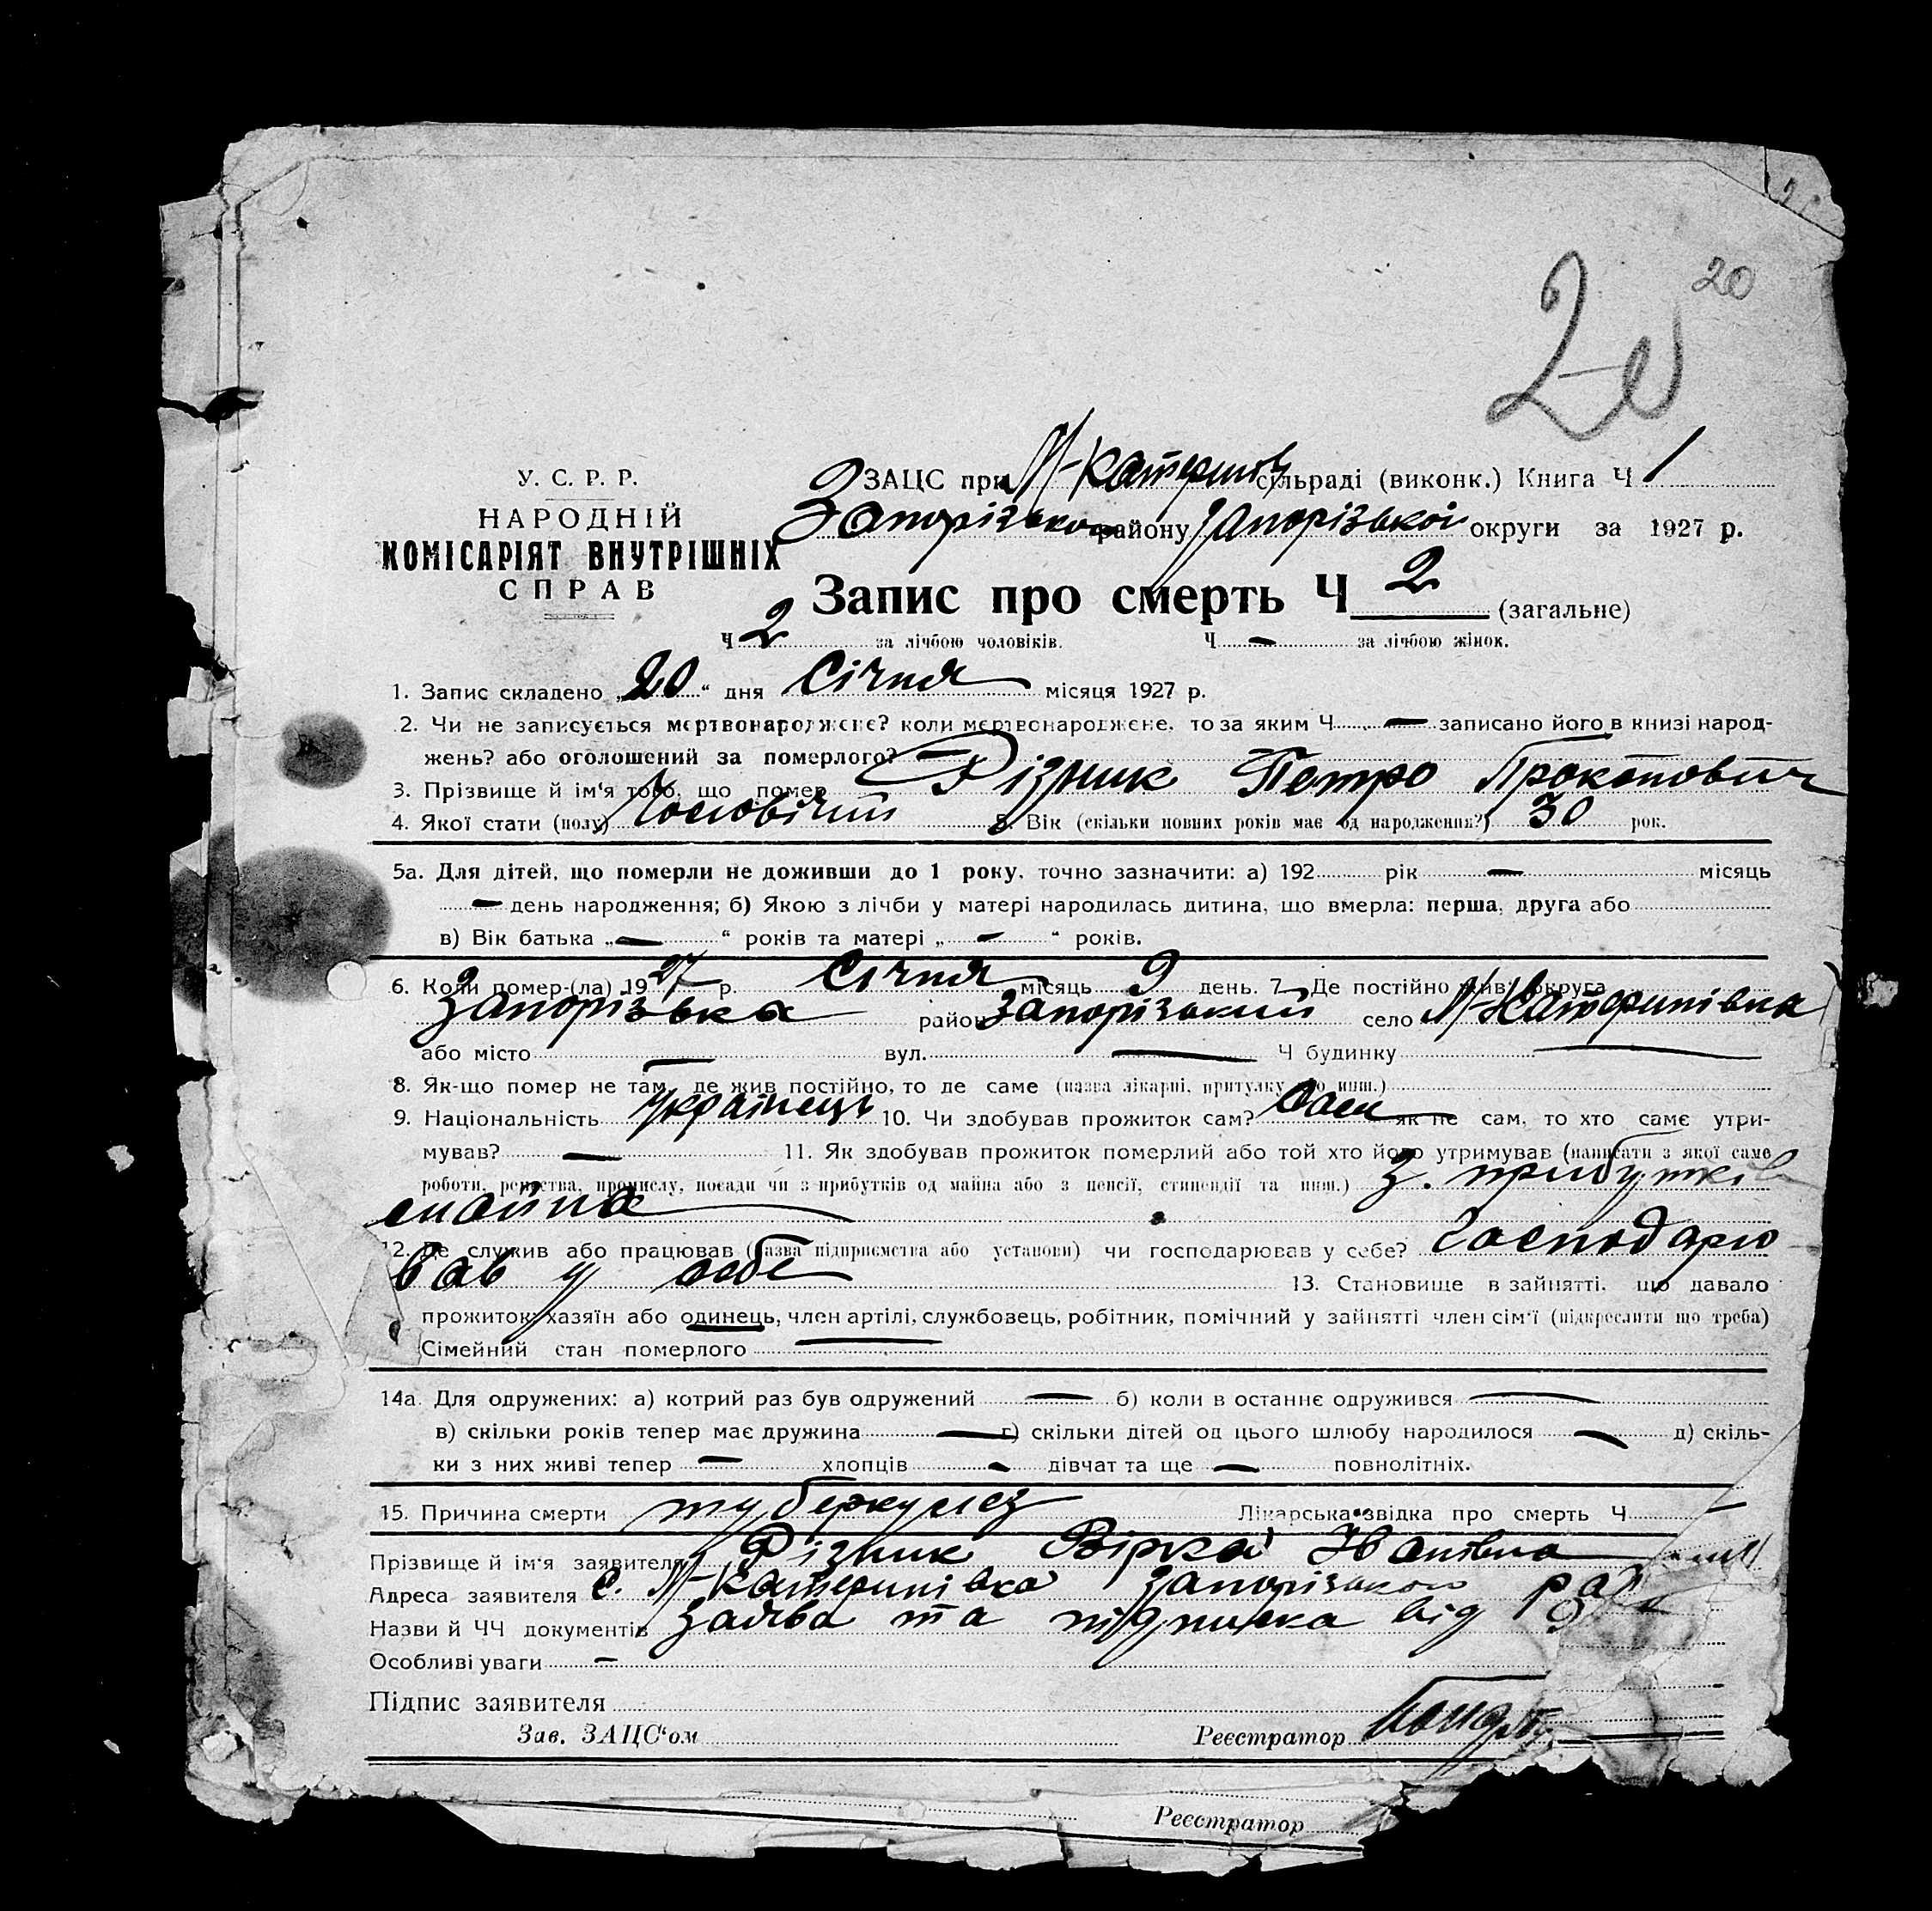 20
2
У. С. Р. Р.
НАРОДНІЙ
КОМІСАРІЯТ ВНУТРІШНІХ
СПРАВ
ЗАЦС при М-Катерин сільраді (виконк.) Книга Ч 1
Запорізького району Запорізької округи за 1927 р.
Запис про смерть Ч 2 (загальне)
Ч 2 за лічбою чоловіків. Ч — за лічбою жінок.
1. Запис складено „20“ дня Січня місяця 1927 р.
2. Чи не записується мертвонароджене? коли мертвонароджене, то за яким Ч — записано його в книзі народ-
жень? або оголошений за померлого? —
3. Прізвище й ім'я того, що помер Різник Петро Прокопович
4. Якої стати (полу) Чоловічий 5. Вік (скільки повних років має од народження?) 30 рок.
5а. Для дітей, що померли не доживши до 1 року, точно зазначити: а) 192 рік — місяць
— день народження; б) Якою з лічби у матері народилась дитина, що вмерла: перша, друга або
в) Вік батька „—“ років та матері „—“ років.
6. Коли помер-(ла) 1927 р. Січня місяць 9 день. 7. Де постійно жив: округа
Запорізька район Запорізький село М-Катеринівка
або місто — вул. — Ч будинку —
8. Як-що помер не там, де жив постійно, то де саме (назва лікарні, притулку або инш.)
9. Національність Українець 10. Чи здобував прожиток сам? Сам як не сам, то хто саме утри-
мував? — 11. Як здобував прожиток померлий або той хто його утримував (написати з якої саме
роботи, ремества, промислу, посади чи з прибутків од майна або з пенсії, стипендії та инш.) З. прибутків
смайна
12. Де служив або працював (назва підприємства або установи) чи господарював у себе? Господарю
вав у себе 13. Становище в зайнятті, що давало
прожиток: хазяїн або одинець, член артілі, службовець, робітник, помічний у зайнятті член сім'ї (підкреслити що треба)
Сімейний стан померлого —
14а. Для одружених: а) котрий раз був одружений — б) коли в останнє одружився —
в) скільки років тепер має дружина — г) скільки дітей од цього шлюбу народилося — д) скіль-
ки з них живі тепер — хлопців — дівчат та ще — повнолітніх.
15. Причина смерти туберкулез Лікарська звідка про смерть Ч —
Прізвище й ім'я заявителя Різник Вірка
Адреса заявителя с. М-Катеринівка Запорізького рай
Назви й ЧЧ документів Заява та підписка від
Особливі уваги —
Підпис заявителя
Зав. ЗАЦС'ом Реєстратор
Реєстратор